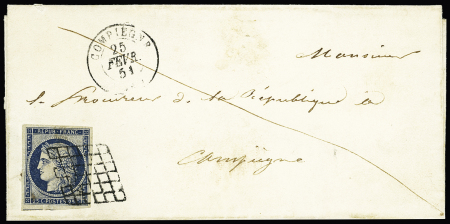 COMPIEGNE
25
FEVR.
51
Monsieur
le Procureur de la République à
Compiègne
REPUB. FRANC.
25 C. POSTES 25 C.